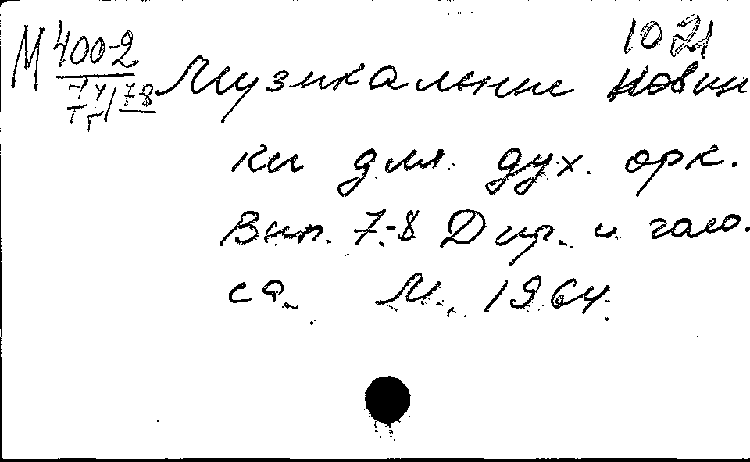 1021
М 400-2
78
Музыкальные новин
ки для дух. орк.
Вып. 7-8 Дир. и голо.
са. М., 1964.